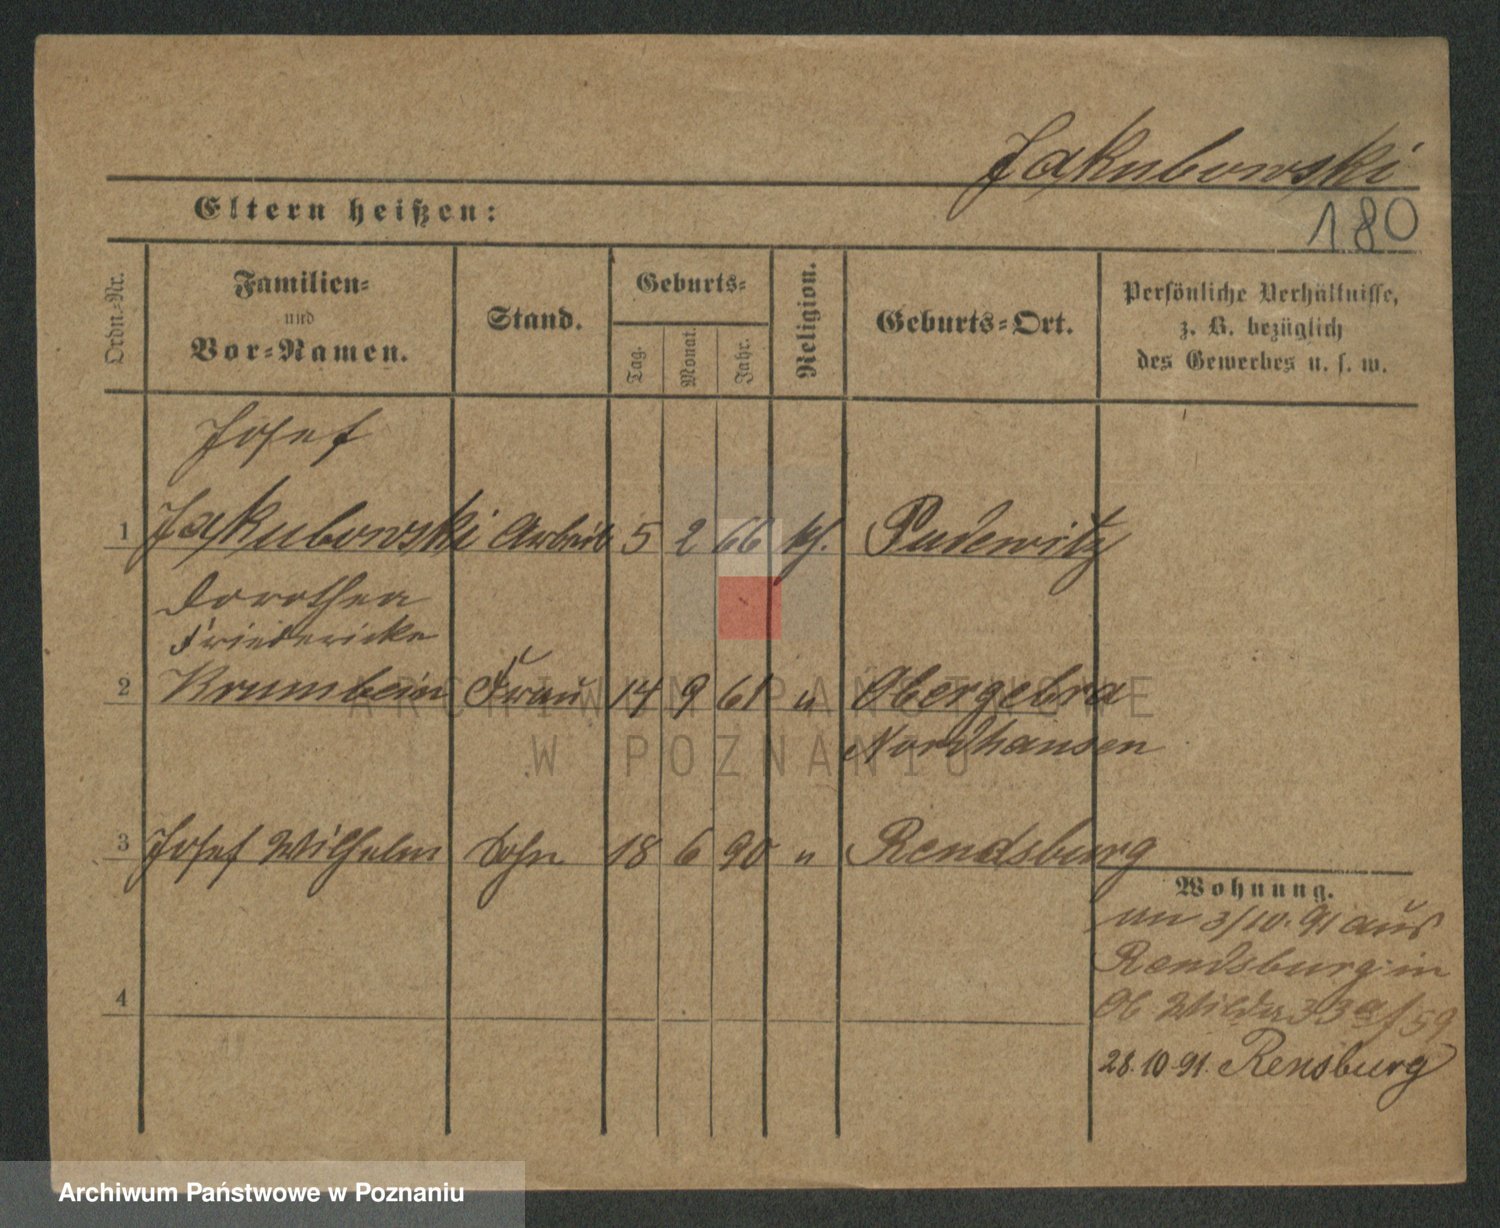 Jakubowski
180
Eltern heißen:
Ordn.-Nr.
Familien-
und
Vor-Namen.
Stand.
Geburts-
Tag.
Monat.
Jahr.
Religion.
Geburts-Ort.
Persönliche Verhältnisse,
z. B. bezüglich
des Gewerbes u. s. w.
Josef
1 Jakubowski Arbeit 5 2 66 kth. Pudewitz
Dorothea
Friedericke
2 Krumbein Frau 14 9 61 u Obergebra
Nordhausen
3 Josef Wilhelm Sohn 18 6 90 u Rendsburg
Wohnung.
an 3/10. 91 aus
Rendsburg in
Ob Wilda 33a f 59
4
28.10.91. Rensburg
ARCHIWUM PAŃSTWOWE
W POZNANIU
Archiwum Państwowe w Poznaniu